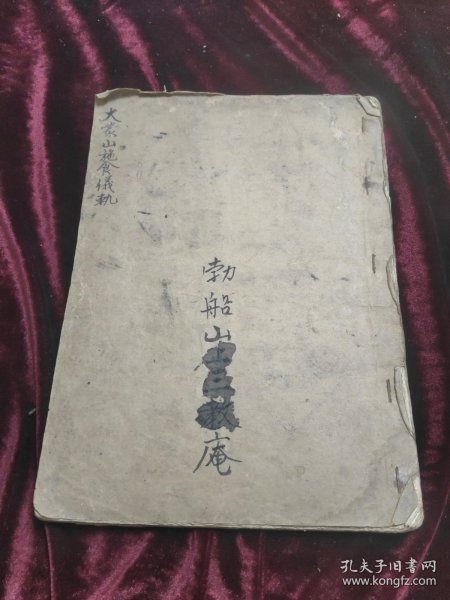 大蒙山施食儀軌
勃船山三教庵
孔夫子旧书网
www.kongfz.com